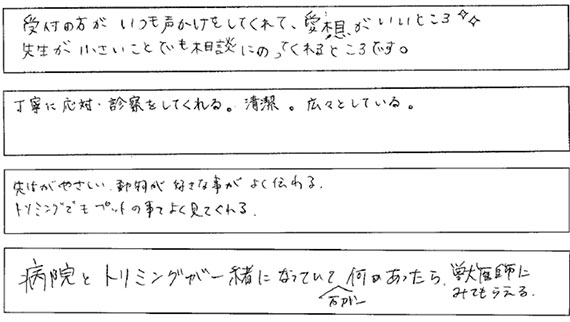 受付の方が いつも声かけをしてくれて、愛想がいいところ✧✧
先生が小さいことでも相談にのってくれるところです。
丁寧に応対・診察をしてくれる。清潔。広々としている。
先生がやさしい. 動物が好きな事がよく伝わる.
トリミングでもペットの事てよく見てくれる.
病院とトリミングが一緒になっていて 何かあったら、獣医師に
万が一
みてもらえる.